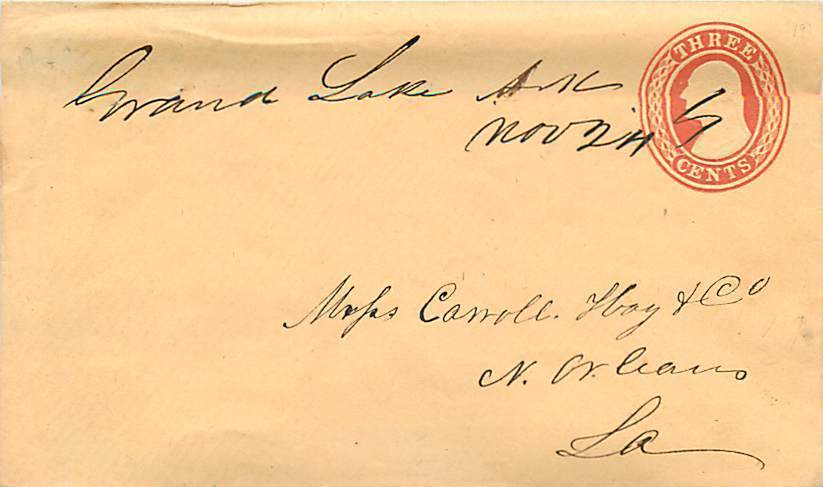 THREE
CENTS
Grand Lake Ark
Nov 24
Messs Carroll. Hoy & Co
N. Orleans
La